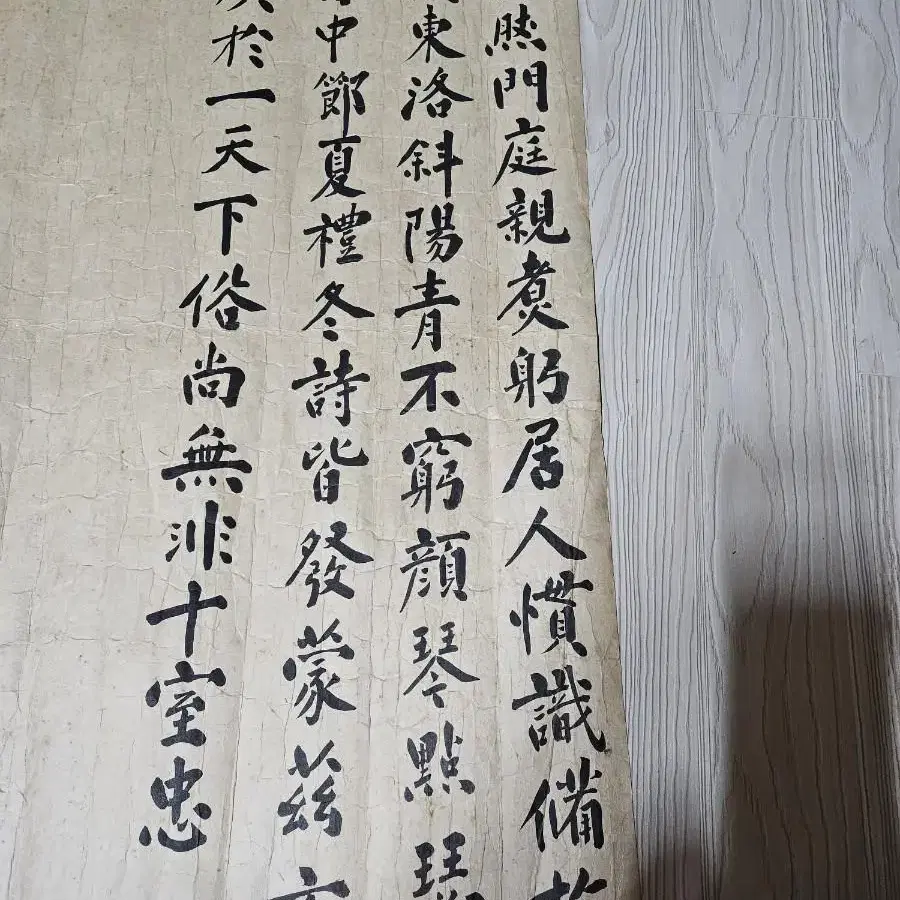 門庭親煮躬居人慣識備
東洛斜陽青不窮顔琴點
中節夏禮冬詩皆發蒙茲
於一天下俗尚無非十室忠